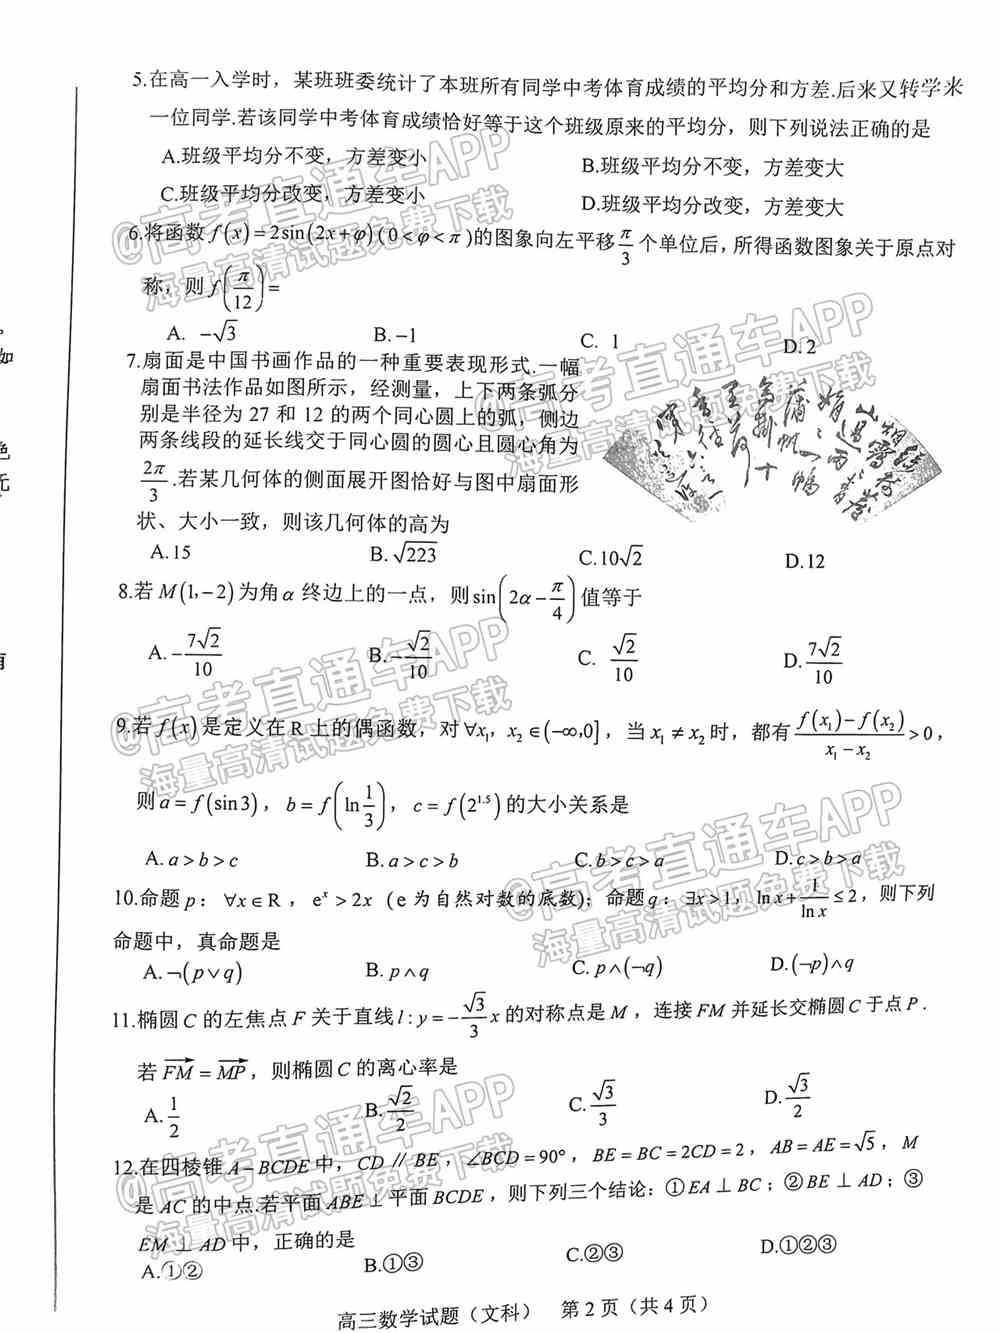 5.在高一入学时，某班班委统计了本班所有同学中考体育成绩的平均分和方差.后来又转学来
一位同学.若该同学中考体育成绩恰好等于这个班级原来的平均分，则下列说法正确的是
A.班级平均分不变，方差变小 B.班级平均分不变，方差变大
C.班级平均分改变，方差变小 D.班级平均分改变，方差变大
6.将函数 f(x)=2sin(2x+φ)(0<φ<π)的图象向左平移 π/3 个单位后，所得函数图象关于原点对
称，则 f(π/12)=
A. -√3 B. -1 C. 1 D. 2
7.扇面是中国书画作品的一种重要表现形式.一幅
扇面书法作品如图所示，经测量，上下两条弧分
别是半径为 27 和 12 的两个同心圆上的弧，侧边
两条线段的延长线交于同心圆的圆心且圆心角为
2π/3 .若某几何体的侧面展开图恰好与图中扇面形
状、大小一致，则该几何体的高为
A.15 B.√223 C.10√2 D.12
8.若 M(1,-2)为角α 终边上的一点，则 sin(2α-π/4)值等于
A. -7√2/10 B. -√2/10 C. √2/10 D. 7√2/10
9.若 f(x) 是定义在 R 上的偶函数，对 ∀x₁, x₂∈(-∞,0]，当 x₁≠x₂ 时，都有 (f(x₁)-f(x₂))/(x₁-x₂)>0，
则 a=f(sin3)，b=f(ln 1/3)，c=f(2^1.5) 的大小关系是
A. a>b>c B. a>c>b C. b>c>a D. c>b>a
10.命题 p：∀x∈R，e^x>2x (e 为自然对数的底数)；命题 q：∃x>1，lnx+1/lnx≤2，则下列
命题中，真命题是
A. ¬(p∨q) B. p∧q C. p∧(¬q) D. (¬p)∧q
11.椭圆 C 的左焦点 F 关于直线 l:y=-√3/3 x 的对称点是 M，连接 FM 并延长交椭圆 C 于点 P.
若 FM=MP，则椭圆 C 的离心率是
A. 1/2 B. √2/2 C. √3/3 D. √3/2
12.在四棱锥 A-BCDE 中，CD∥BE，∠BCD=90°，BE=BC=2CD=2，AB=AE=√5，M
是 AC 的中点.若平面 ABE⊥平面 BCDE，则下列三个结论：①EA⊥BC；②BE⊥AD；③
EM⊥AD 中，正确的是
A.①② B.①③ C.②③ D.①②③
高三数学试题（文科） 第 2 页（共 4 页）
@高考直通车APP
海量高清试题免费下载
@高考直通车APP
海量高清试题免费下载
@高考直通车APP
海量高清试题免费下载
@高考直通车APP
海量高清试题免费下载
@高考直通车APP
海量高清试题免费下载